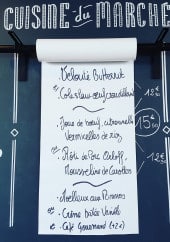 CUISINE du MARCHÉ
Velouté Butternut
Joue de bœuf, citronnelle
Vermicelles de riz
15€50
12€
Rôti de Porc Orloff,
Mousseline de Carottes
12€
Moelleux aux Marrons
Crème brûlée Vanille
Café Gourmand (+2€)